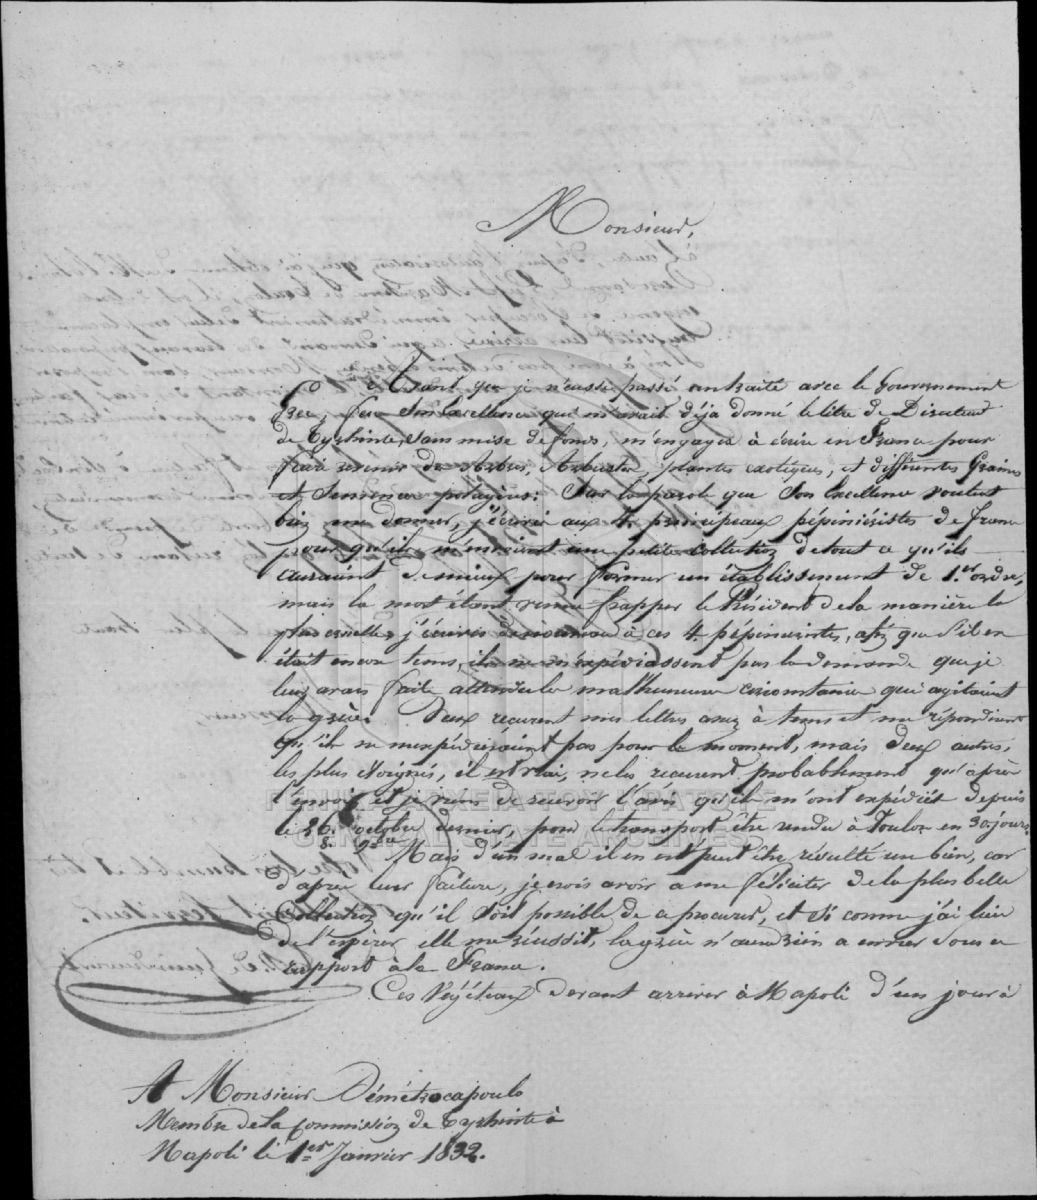 Monsieur,
Avant que je n'eusse passé un traité avec le Gouvernement
Grec, feu Son Excellence qui m'avait déjà donné le titre de Directeur
de Tyrhinte, sans mise de fonds, m'engagea à écrire en France pour
faire venir des Arbres, Arbustes, plantes exotiques, et différentes Graines
et Semences potagères: Sur la parole que Son Excellence voulut
bien me donner, j'écrivis aux 4 principeaux pépiniéristes de france
pour qu'ils m'envoient une petite collection de tout ce qu'ils
auraient de mieux pour former un établissement de 1.er ordre,
mais la mort étant venue frapper le Président de la manière la
plus cruelle, j'écrivis de nouveau à ces 4 pépinieristes, afin que s'il en
était encore tems, ils ne m'expédiassent pas la demande que je
leur avais faite attendu les malheureuses circonstances qui agitaient
la grèce. Deux reçurent mes lettres assez à tems et me répondirent
qu'ils ne m'expédieraient pas pour le moment, mais deux autres,
les plus éloignés, il est vrai, ne les reçurent probablement qu'après
l'envoi, et je viens de recevoir l'avis qu'ils m'ont expédiés depuis
le 26 octobre dernier, pour le transport être rendu à Toulon en 30 jours
8. 9bre
Mais d'un mal il en est peut être résulté un bien, car
d'après leur facture, je crois avoir a me féliciter de la plus belle
Collection qu'il soit possible de se procurer, et si comme j'ai lieu
de l'espérer elle me réussit, la grèce n'aura rien a envier sous ce
rapport à la France.
Ces Végéteaux devant arriver à Napoli d'un jour à
A Monsieur Démétrocapoulo
Membre de la Commission de Tyrhinte à
Napoli le 1er Janvier 1832.
ΓΕΝΙΚΑ ΑΡΧΕΙΑ ΤΟΥ ΚΡΑΤΟΥΣ
GENERAL STATE ARCHIVES